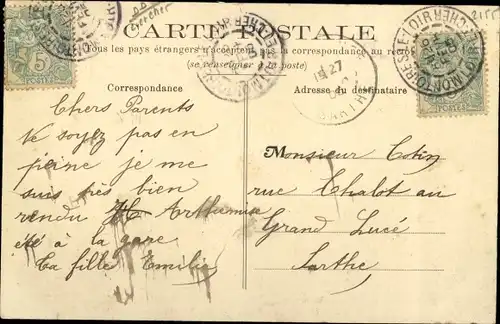 CARTE POSTALE
Tous les pays étrangers n'acceptent pas la correspondance au recto
(se renseigner à la poste)
Correspondance
Adresse du destinataire
Chers Parents
Ne soyez pas en
peine je me
suis très bien
rendu
été à la gare
Ta fille Emilia
Monsieur
rue Chalot au
Grand Lucé
Sarthe
5
POSTES
MONTOIRE-S-LE-LOIR